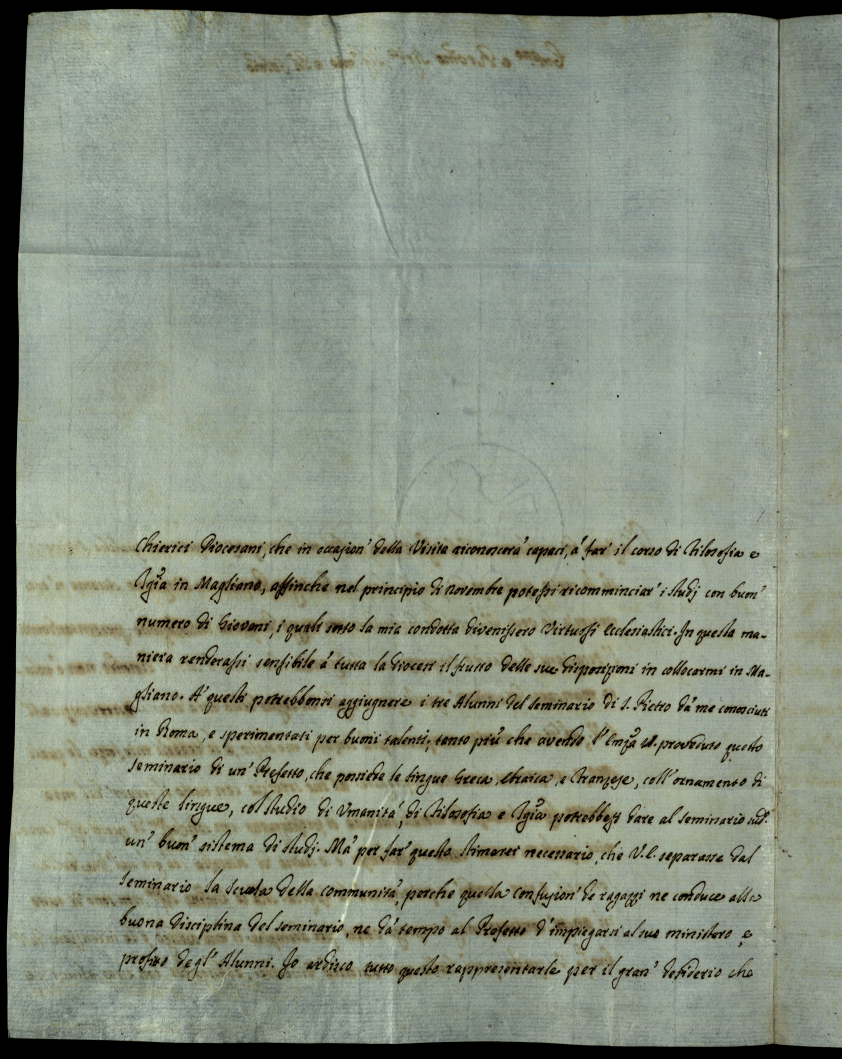 Chierici Diocesani, che in occasion' della Visita riconoscerà capaci, à far' il corso di Filosofia e
Tgia in Magliano, affinche nel principio di novembre potessi ricomminciar' i studj con buon'
numero di Giovani, i quali sotto la mia condotta divenissero Virtuosi Ecclesiastici. In questa ma-
niera renderassi sensibile à tutta la diocesi il frutto delle sue disposizioni in collocarmi in Ma-
gliano. A' questi potrebbonsi aggiugnere i tre Alunni del seminario di S. Pietro dà me conosciuti
in Roma, e sperimentati per buoni talenti; tanto più che avendo l'Emza V. proveduto questo
seminario di un' Prefetto, che possiede le lingue Greca, Ebraica, e Franzese, coll'ornamento di
queste lingue, col studio di Vmanità, di Filosofia e Tgia potrebbesi dare al seminario sud.
un' buon' sistema di studj. Mà per far' questo stimarei necessario, che V.E. separasse dal
seminario la scuola della communità, perche quella confusion' de ragazzi ne conduce alla
buona disciplina del seminario, ne dà tempo al Prefetto d'impiegarsi al suo ministero e
profitto degl' Alunni. Io ardisco tutto questo rappresentarle per il gran' desiderio che